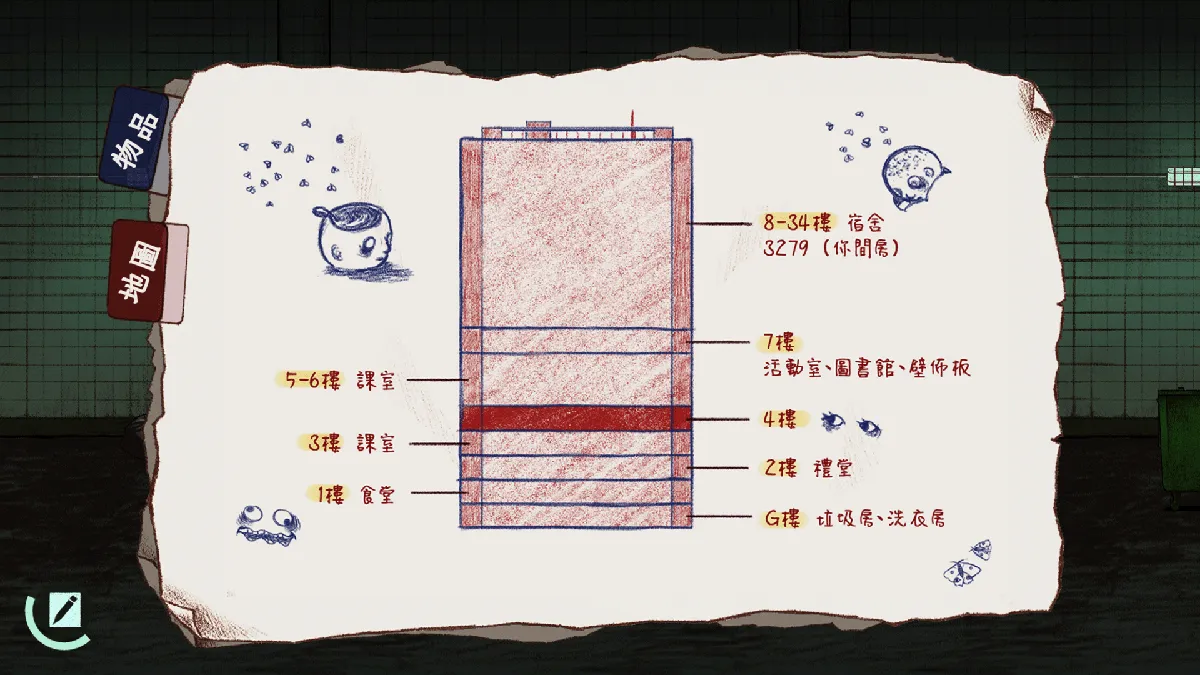 物品
地圖
8-34樓 宿舍
3279 (你間房)
7樓
活動室、圖書館、壁佈板
5-6樓 課室
4樓
3樓 課室
2樓 禮堂
1樓 食堂
G樓 垃圾房、洗衣房